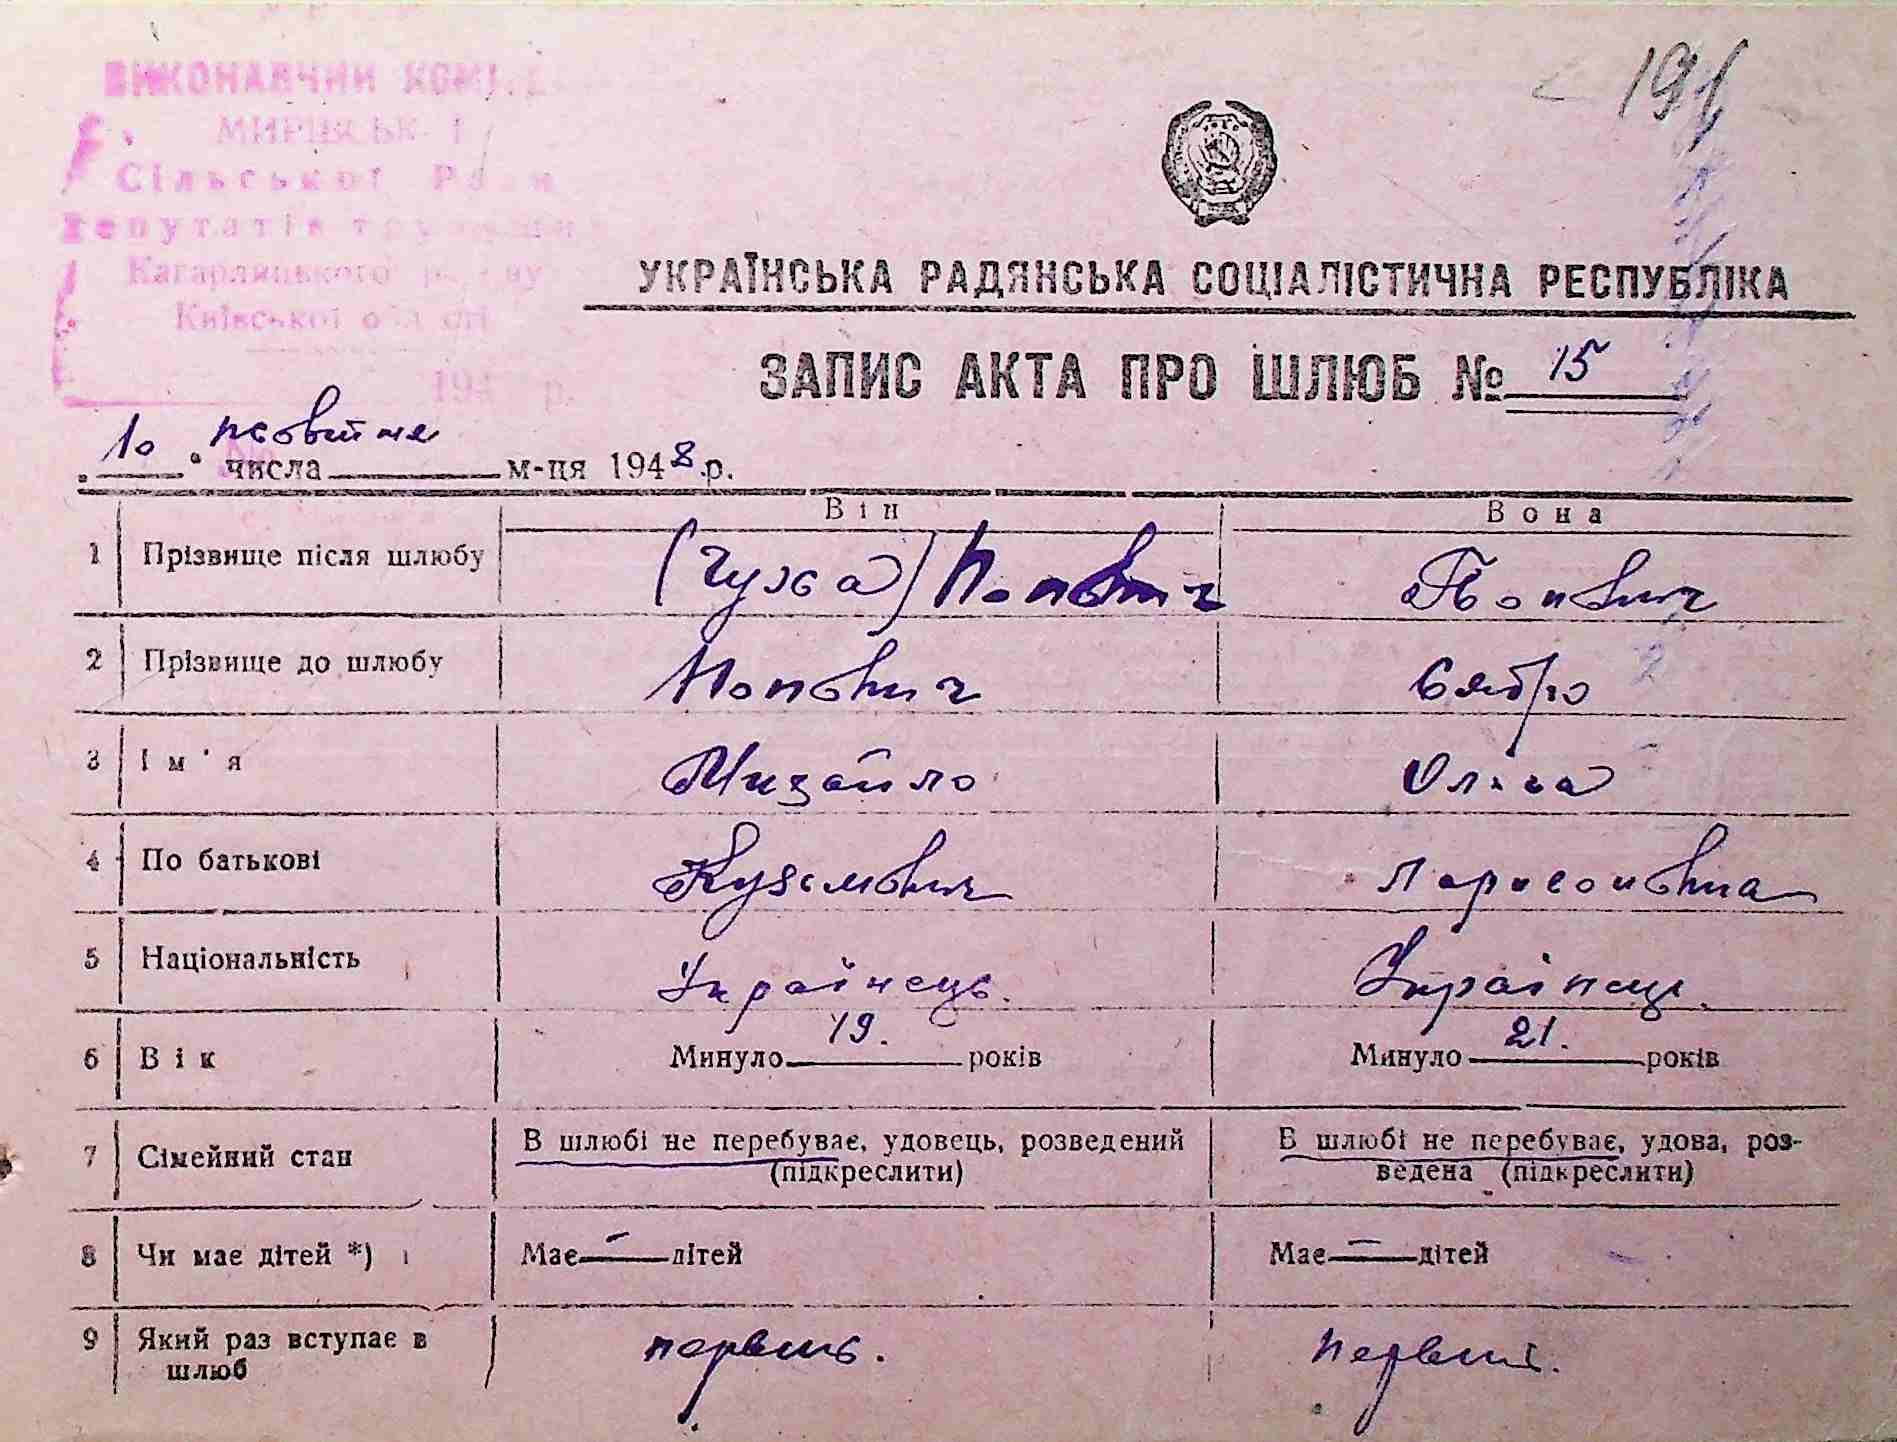 191
ВИКОНАВЧИЙ КОМІ
МИРІВСЬК І
Сільської Ради
депутатів трудящих
Кагарлицького р ну
Київської області
194 р.
УКРАЇНСЬКА РАДЯНСЬКА СОЦІАЛІСТИЧНА РЕСПУБЛІКА
ЗАПИС АКТА ПРО ШЛЮБ № 15
"10" числа м-ця 1948 р.
Він Вона
1 Прізвище після шлюбу (Чужа) Попович Попович
2 Прізвище до шлюбу Попович Сябро
3 Ім'я Михайло Ольга
4 По батькові Кузьмович Ларионовна
5 Національність Українець. Українець.
6 Вік Минуло 19. років Минуло 21. років
7 Сімейний стан В шлюбі не перебуває, удовець, розведений (підкреслити) В шлюбі не перебуває, удова, роз-
ведена (підкреслити)
8 Чи має дітей *) Має — дітей Має — дітей
9 Який раз вступає в
шлюб первий. первий.